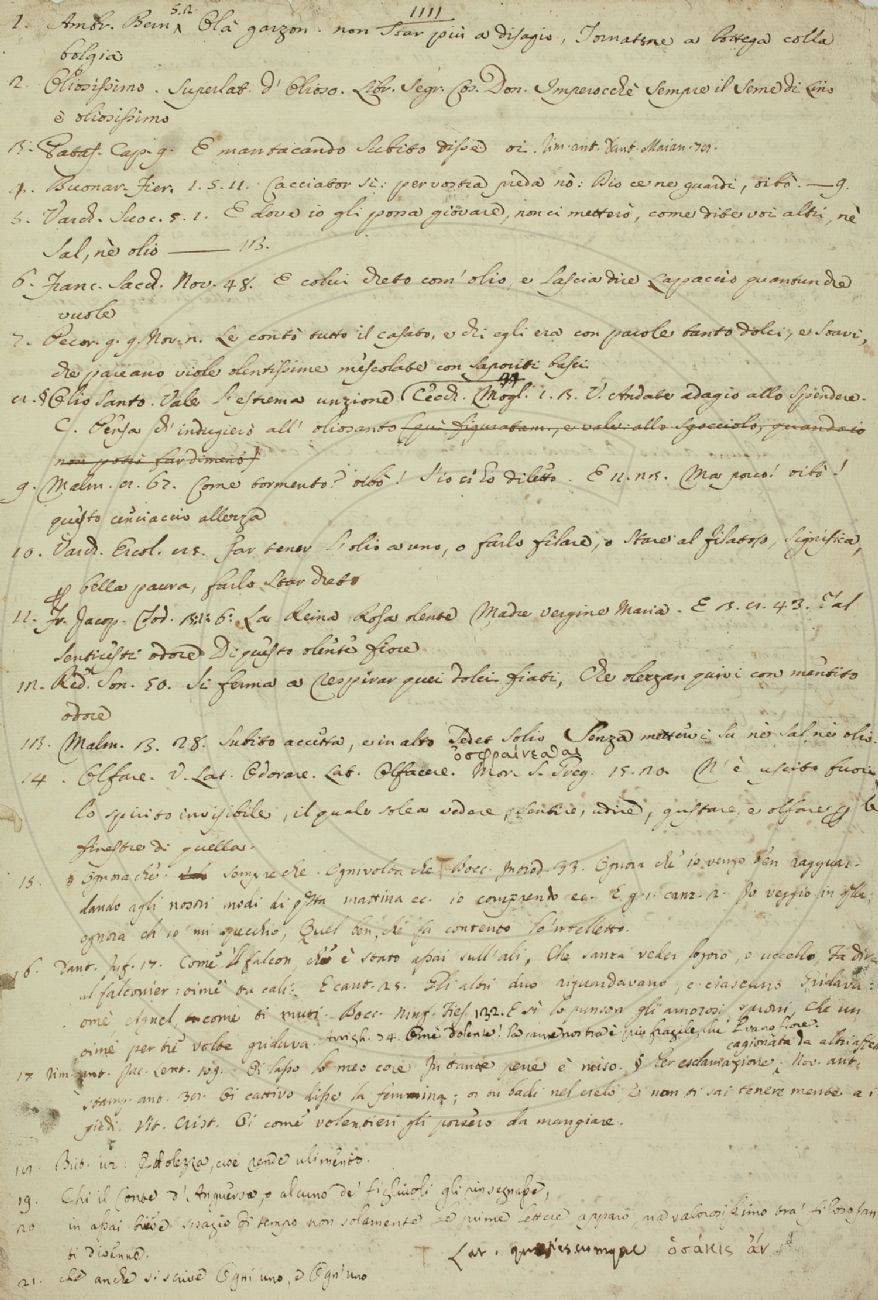 1111
1. Ambr. Bern. 5.2. Olà garzon. non star più a disagio, Tornatene a bottega colla
bolgia
2. Oliosissimo. Superlat. d'Olioso. Libr. Segr. Cos. Don. Imperocchè sempre il seme di Lino
è oliosissimo
Pataf. Cap. 9. E manucando subito disse oi. Rim. ant. Dant. Maian.
4. Buonar. Fier. 1. 5. 11. Cacciator sì: per vostra preda nò: Dio ce ne guardi, oibò. — 9.
5. Varch. Suoc. 5. 1. E dove io gli possa giovare, non ci metterò, come dite voi altri, nè
sal, nè olio —
6. Franc. Sacch. Nov. 48. E colui cheto com'olio, e lascia dire Lappaccio quantunche
vuole
7. Pecor. g. 9. Nov. Le contò tutto il casato, e chi egli era con parole tanto dolci, e soavi,
che pareano viole olentissime mescolate con saporiti basci
§ Olio santo. Vale l'estrema unzione Cecch. Mogl. 1. V. Andate adagio allo spendere.
C. Pensa ch'indugierò all' oliosanto qui figuratam. e vale: allo sgocciolo, quando io
non possi far dimeno
9. Malm. 62. Come tormento? oibò! s'io ci ho diletto. E Ma poco! oibò!
questo cenciaccio allezza
10. Varch. Ercol. far tener l'olio a uno, o farlo filare, o stare al filatojo, significa,
per bella paura, farlo star cheto
11. Fr. Jacop. Tod. 6. La Reina Rosa olente Madre vergine Maria. E 43. Tal
sentiresti odore Di questo olente fiore
Red. Son. 50. Si ferma a respirar quei dolci fiati, Che olezzan quivi con mentito
odore
Malm. 28. Subito accetta, e in alto Sede solio Senza metterci su nè sal, nè olio.
ὀσφραίνεσθαι
14. Olfare. V. Lat. Odorare. Lat. Olfacere. Mor. S. Greg. 15. 20. N'è uscito fuori
lo spirito invisibile, il quale solea vedere, sentire, udire, gustare, e olfare per le
finestre di quella.
15. Ognora chè. sempre che. Ognivolta che Bocc. Introd. 33. Ognora che io vengo ben ragguar-
dando agli nostri modi di questa mattina ec. io comprendo ec. E g. 1. canz. 2. Io veggio in quella,
ognora ch'io mi specchio, Quel ben, che fa contento lo'ntelletto.
16. Dant. Inf. 17. Come'l falcon, ch'è stato assai sull'ali, Che sanza veder logoro, o uccello, Fa dire
al falconier: oimè tu cali. E cant. 25. Gli altri duo riguardavano, e ciascuno Gridava:
omè Agnel, come ti muti. Bocc. Ninf. Fies. 132. E sì lo punson gli amorosi sproni, Che un
oimè per tre volte gridava. Arrigh. 74. Oimè dolente! la carne nostra è più fragile, che 'l vano fiore.
cagionata da altri affetti
17. Rim. ant. Jac. Lent. 109. Oi lasso lo meo core In tante pene è miso. § Per esclamazione. Nov. ant.
stamp. ant. Oi cattivo disse la femmina; or tu badi nel cielo, e non ti sai tenere mente a i
piedi. Vit. Crist. Oi come volentieri gli porsero da mangiare.
But. Olezza, cioè rende ulimento.
19. Chi il Conte d'Anguersa, o alcuno de' figliuoli gli rinsegnasse,
20. in assai breve spazio di tempo non solamente le prime lettere apparò, ma valorosissimo tra' filosofan-
ti divenne.
Lat. quotiescumque ὁσάκις ἄν
21. che anche si scrive Ogni uno, e Ogn'uno